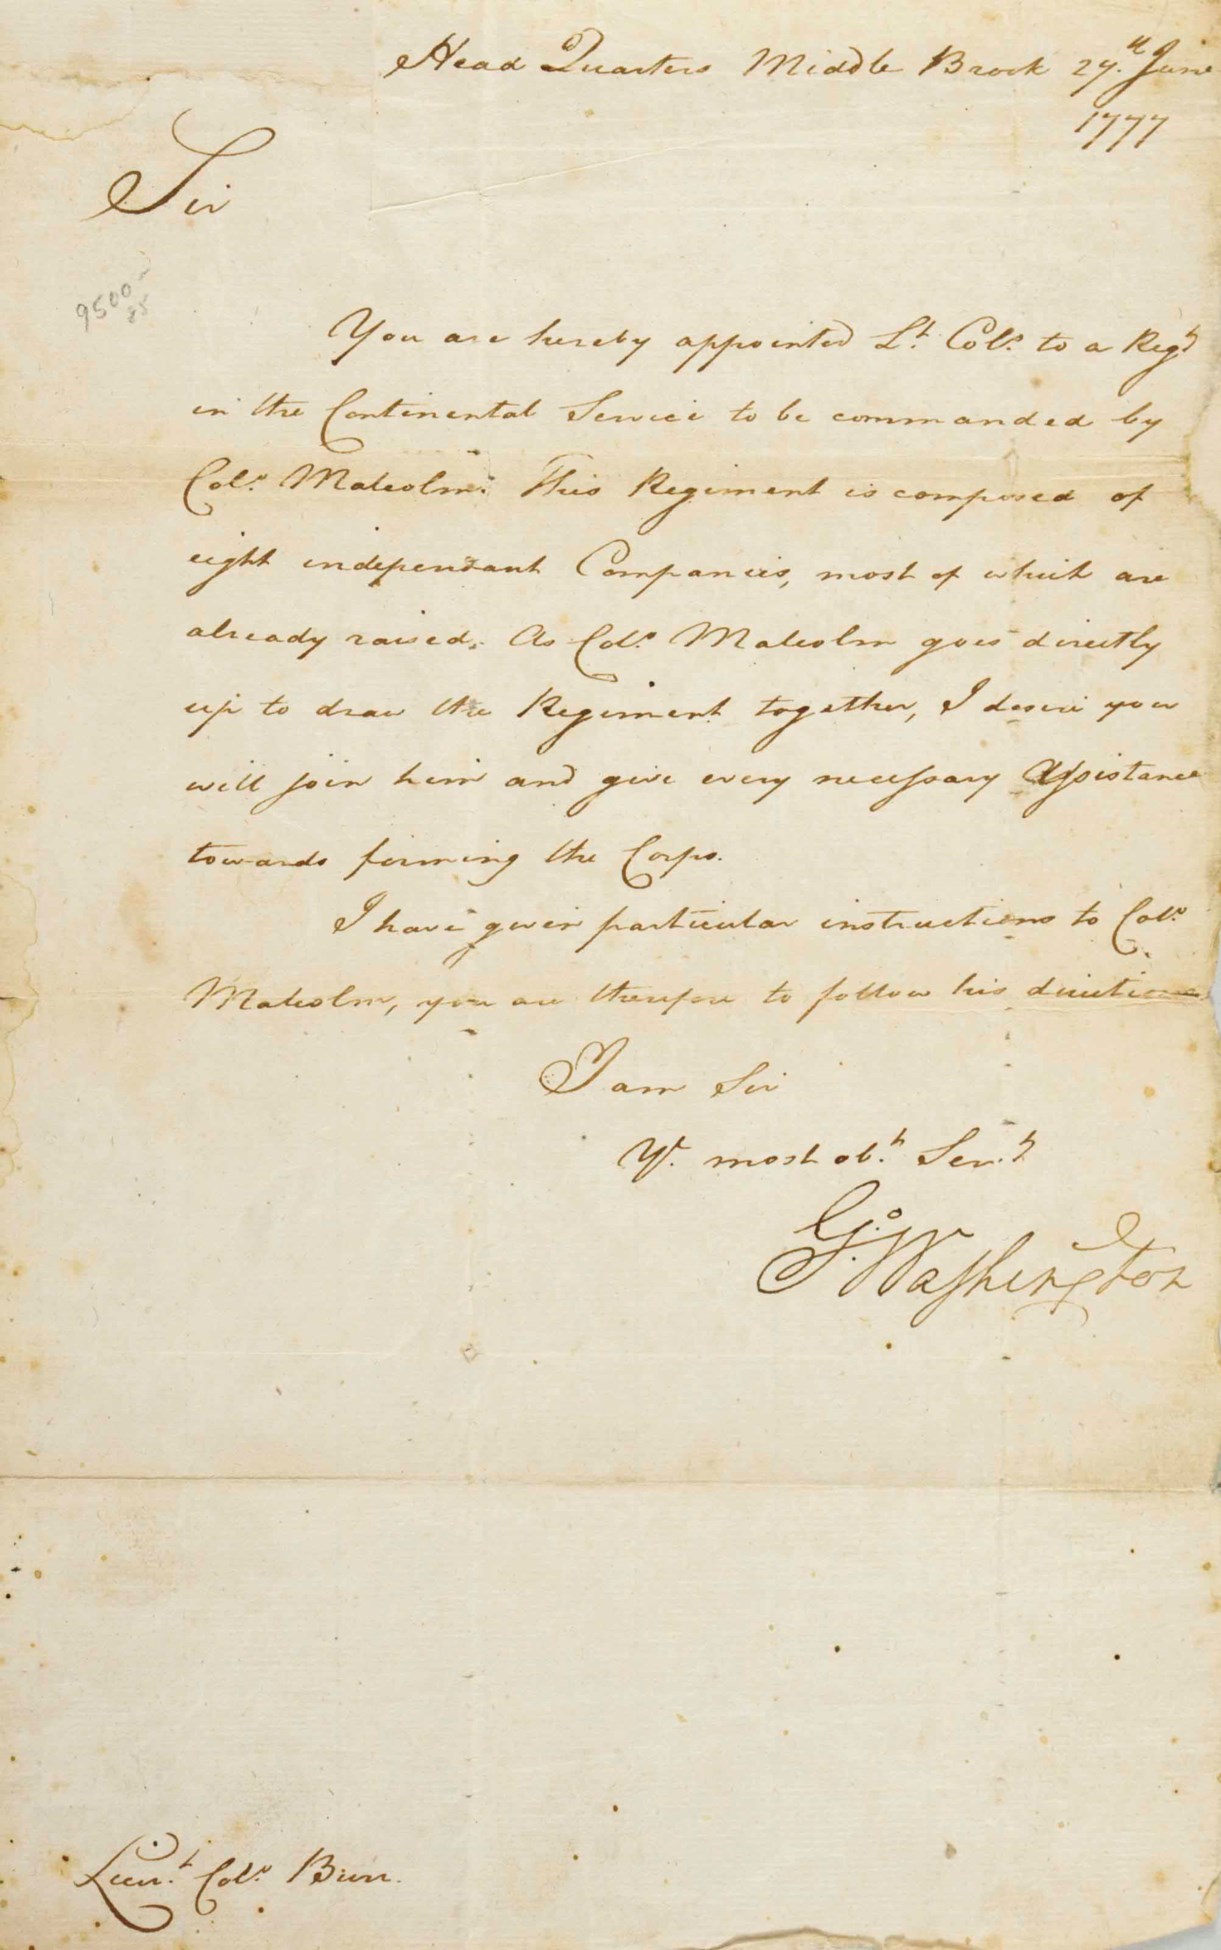 Head Quarters Middle Brook 27th June
1777
Sir
9500-
85
You are hereby appointed Lt. Colo. to a Regt
in the Continental Service to be commanded by
Colo. Malcolm. This Regiment is composed of
eight independant Companies, most of which are
already raised. As Colo. Malcolm goes directly
up to draw the Regiment together, I desire you
will join him and give every necessary Assistance
towards forming the Corps.
I have given particular instructions to Colo.
Malcolm, you are therefore to follow his directions
I am Sir
Yr. most obt. Servt.
Go. Washington
Lieut. Colo. Burr.